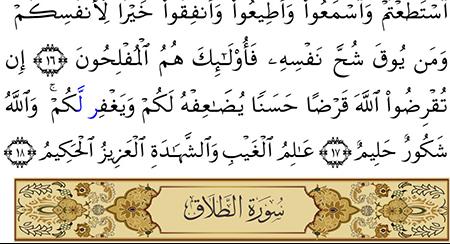 ٱسْتَطَعْتُمْ وَٱسْمَعُوا۟ وَأَطِيعُوا۟ وَأَنفِقُوا۟ خَيْرًا لِّأَنفُسِكُمْ
وَمَن يُوقَ شُحَّ نَفْسِهِۦ فَأُو۟لَـٰٓئِكَ هُمُ ٱلْمُفْلِحُونَ ﴿١٦﴾ إِن
تُقْرِضُوا۟ ٱللَّهَ قَرْضًا حَسَنًا يُضَـٰعِفْهُ لَكُمْ وَيَغْفِر لَّكُمْ ۚ وَٱللَّهُ
شَكُورٌ حَلِيمٌ ﴿١٧﴾ عَـٰلِمُ ٱلْغَيْبِ وَٱلشَّهَـٰدَةِ ٱلْعَزِيزُ ٱلْحَكِيمُ ﴿١٨﴾
سُورَةُ الطَّلَاقِ